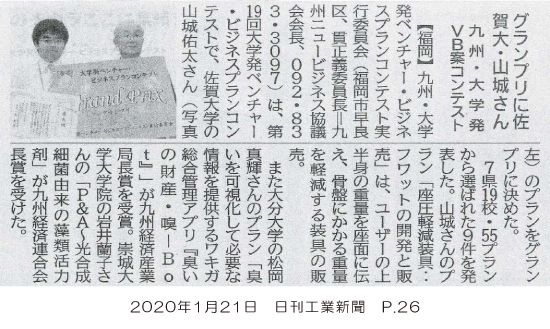 グランプリに佐
賀大・山城さん
九州・大学発
VB案コンテスト
【福岡】九州・大学
発ベンチャー・ビジネ
スプランコンテスト実
行委員会（福岡市早良
区、貫正義委員長＝九
州ニュービジネス協議
会会長、092・83
3・3097）は、第
19回大学発ベンチャー
・ビジネスプランコン
テストで、佐賀大学の
山城佑太さん（写真
左）のプランをグラン
プリに決めた。
7県19校・55プラン
から選ばれた9件を発
表した。山城さんのプ
ラン「座圧軽減装具：
フワットの開発と販
売」は、ユーザーの上
半身の重量を座面に伝
え、骨盤にかかる重量
を軽減する装具の販
売。
また大分大学の松岡
真輝さんのプラン「臭
いを可視化して必要な
情報を提供するワキガ
総合管理アプリ『臭い
の財産・嗅―Bo
t』」が九州経済産業
局長賞を受賞。崇城大
学大学院の岩井蘭子さ
んの「P&A―光合成
細菌由来の藻類活力
剤」が九州経済連合会
長賞を受けた。
Grand Prix
2020年1月21日 日刊工業新聞 P.26